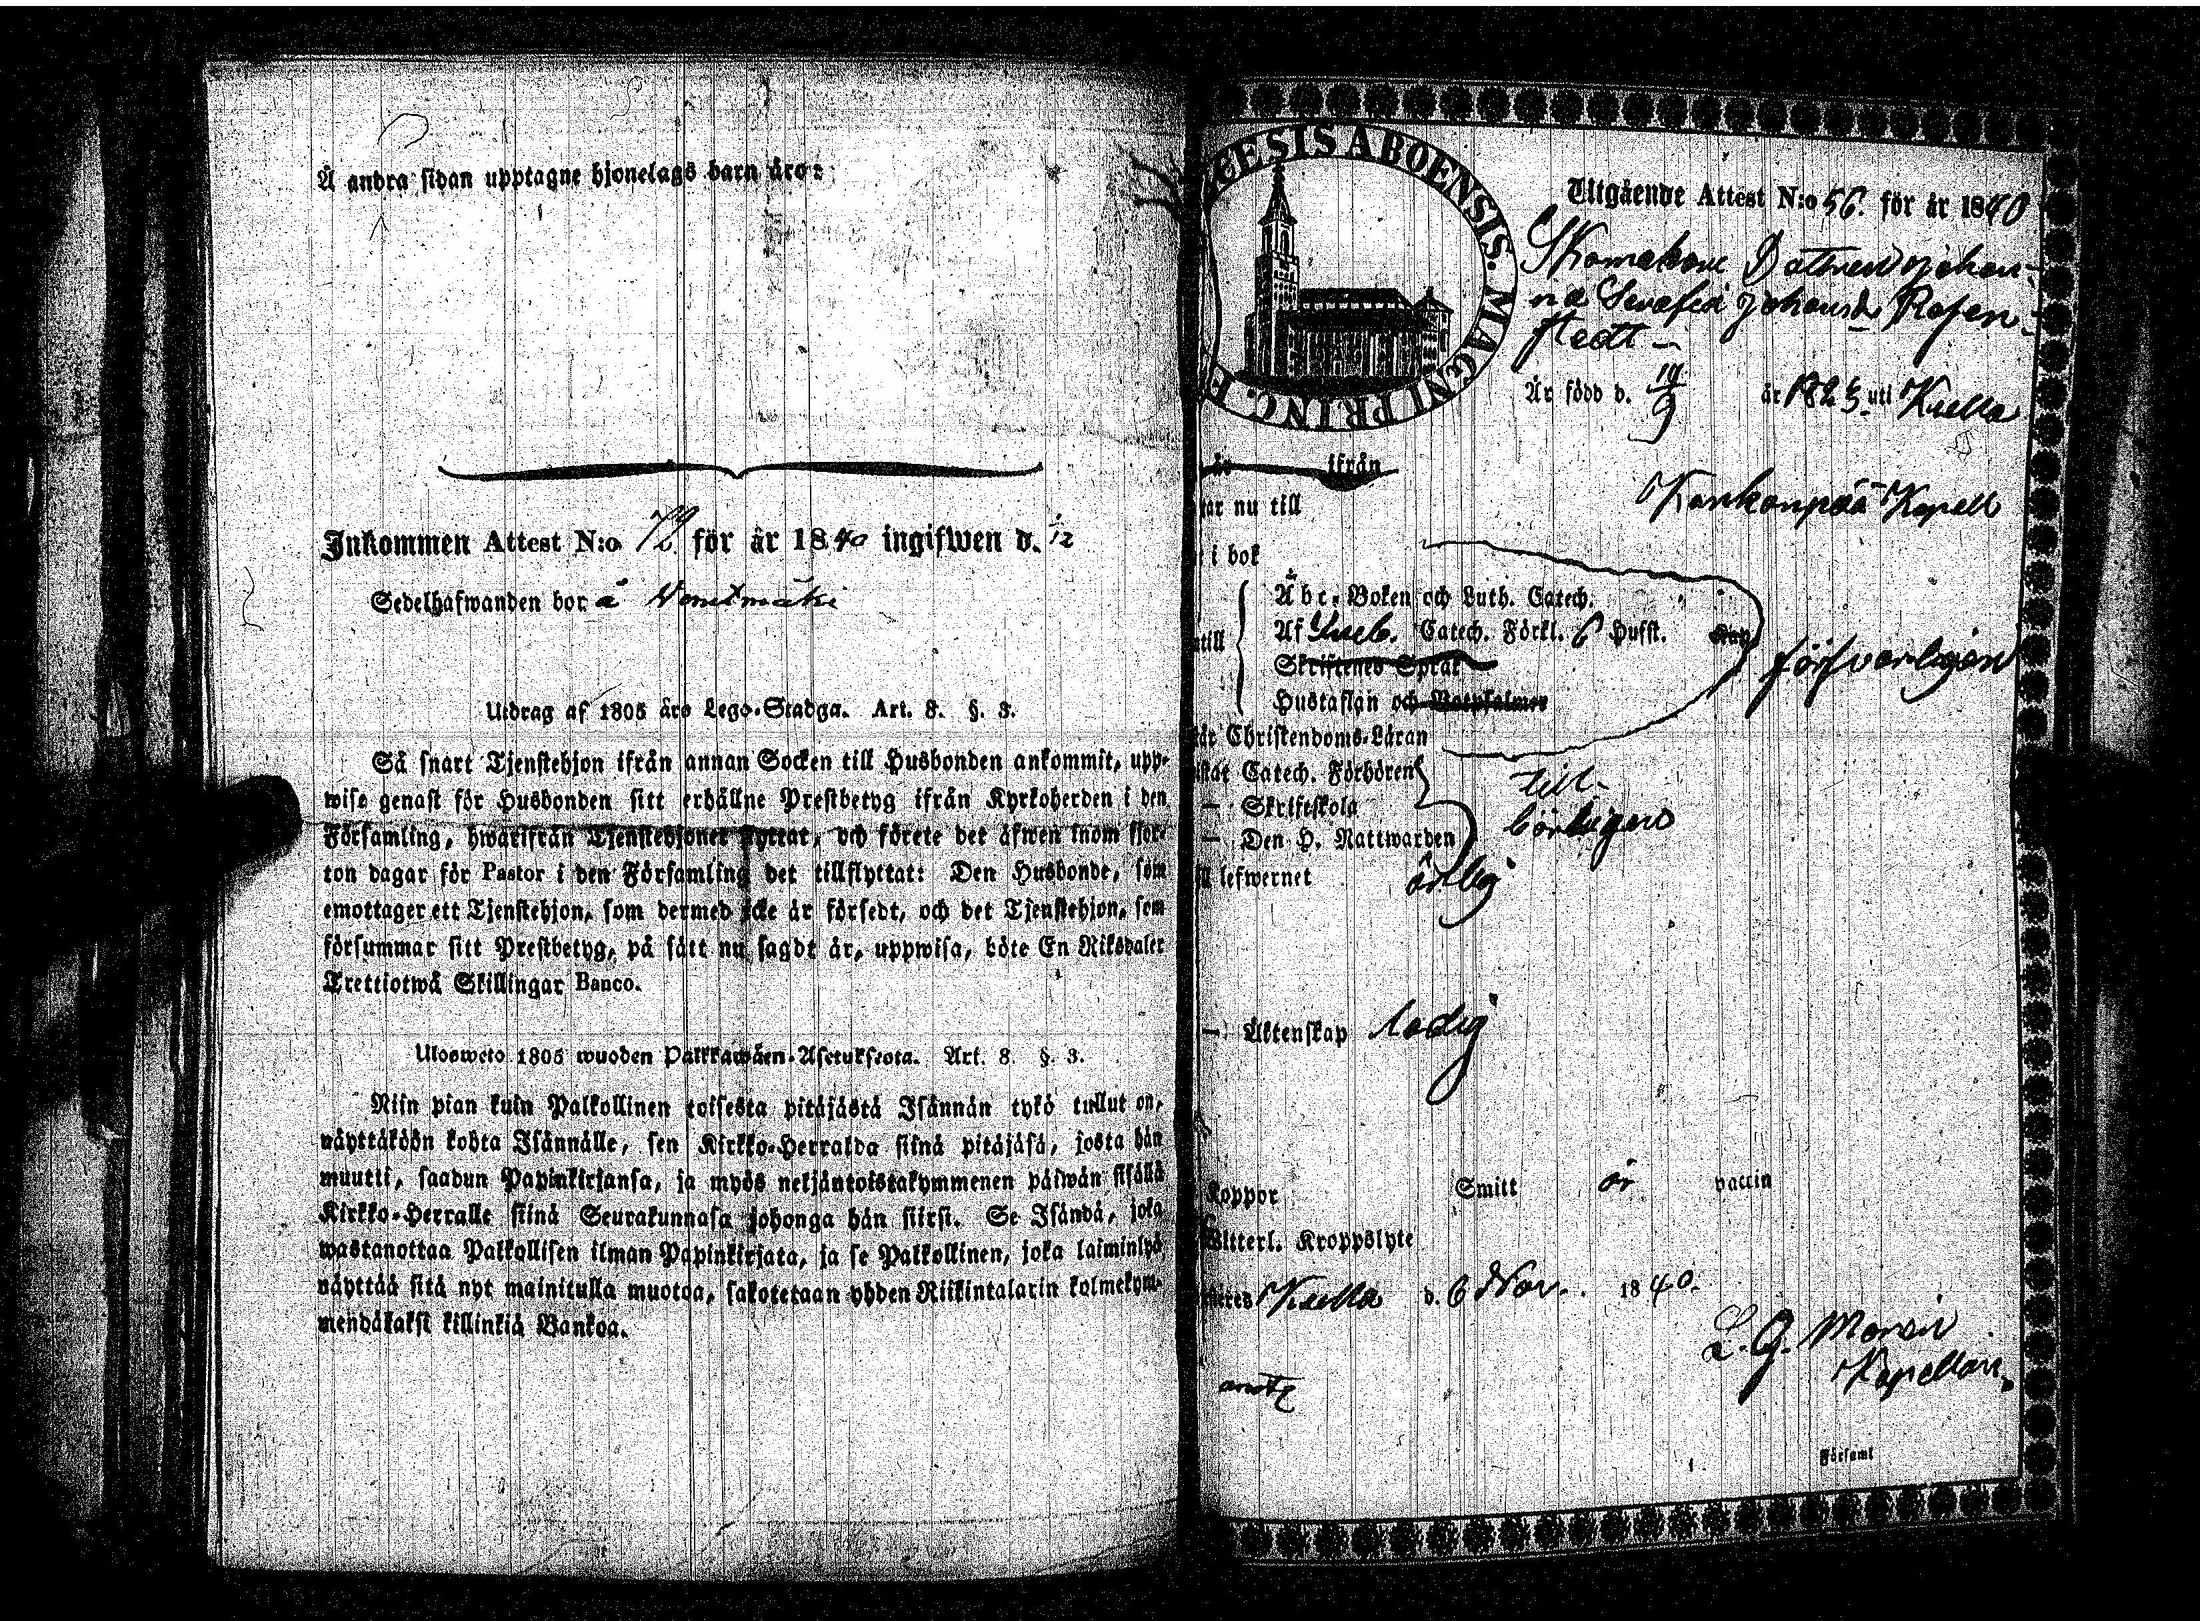 Å andra sidan upptagne hjonelags barn äro:
Inkommen Attest N:o 72 för år 1840 ingifwen d. 1/12
Sedelhafwanden bor å
Utdrag af 1805 års Lego-Stadga. Art. 8. §. 3.
Så snart Tjenstehjon ifrån annan Socken till Husbonden ankommit, upp-
wise genast för Husbonden sitt erhållne Prestbetyg ifrån Kyrkoherden i den
Församling, hwarifrån Tjenstehjonet flyttat, och förete det äfwen inom fjor-
ton dagar för Pastor i den Församling det tillflyttat: Den Husbonde, som
emottager ett Tjenstehjon, som dermed icke är försedt, och det Tjenstehjon, som
försummar sitt Prestbetyg, på sätt nu sagdt är, uppwisa, böte En Riksdaler
Trettiotwå Skillingar Banco.
Ulosweto 1805 wuoden Palkkawäen-Asetuksesta. Art. 8. §. 3.
Niin pian kuin Palkollinen toisesta pitäjästä Isännän tykö tullut on,
näyttäköön kohta Isännälle, sen Kirkko-Herralda siinä pitäjäsä, josta hän
muutti, saadun Papinkirjansa, ja myös neljäntoistakymmenen päiwän sisällä
Kirkko-Herralle siinä Seurakunnasa johonga hän siirsi. Se Isändä, joka
wastanottaa Palkollisen ilman Papinkirjata, ja se Palkollinen, joka laiminlyö
näyttää sitä nyt mainitulla muotoa, sakotetaan yhden Riikintalarin kolmekym-
mendäkaksi killinkiä Bankoa.
CESIS ABOENSIS. MAGNI PRINC. F
Utgående Attest N:o 56. för år 1840
Skomakare Dottren Johan-
na Serafia Johansd. Rosen-
stedt
Är född d. 19/9 år 1823 uti Kiella
ifrån
nu till Kankanpää Kapell
i bok
Abc-Boken och Luth. Catech.
Af Sueb. Catech. Förkl. 6 Hufst. Kap
Skriftenes Språk
Hustaflan och Botpsalmer
försvarligen
Christendoms-Läran
Catech. Förhören
— Skriftskola
— Den H. Nattwarden
till-
börligen
till lefwernet ärlig
— Äktenskap ledig
Koppor Smitt är vaccin
Witterl. Kroppslyte
Kiella d. 6 Nov. 1840.
Kapellan
Församl